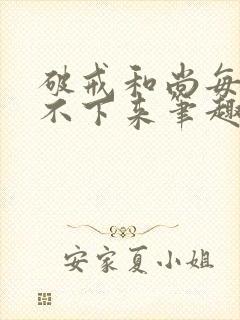 破戒和尚每
不下来笔趣
安家夏小姐